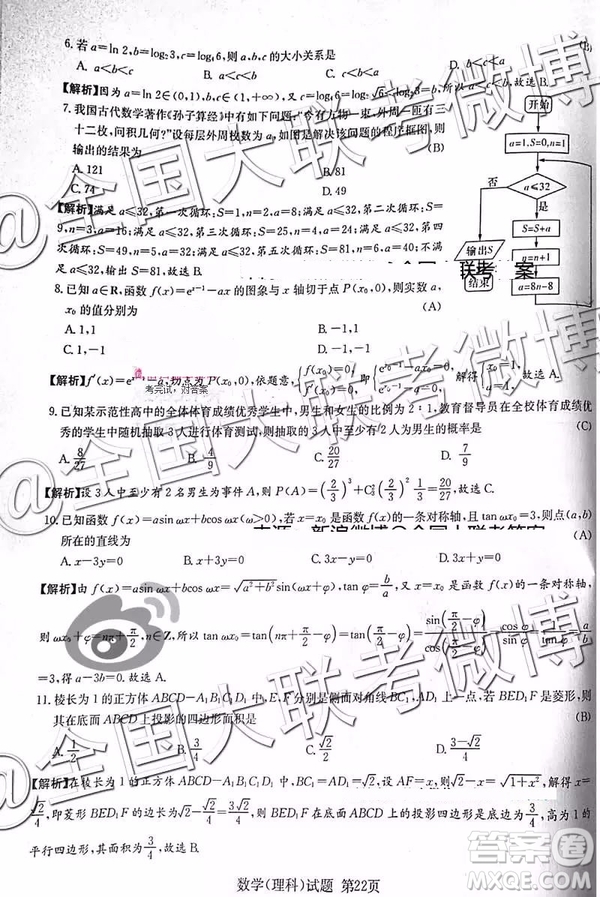 6. 若 a=ln 2, b=log₂3, c=log₅6, 则 a,b,c 的大小关系是 (B)
A. a<b<c B. a<c<b C. c<a<b D. c<b<a
【解析】因为 a=ln 2∈(0,1), b,c∈(1,+∞),
7. 我国古代数学著作《孙子算经》中有如下问题:“今有方物一束,外周有三
十二枚,问积几何?”设每层外周枚数为 a,如图是解决该问题的程序框图,则
输出的结果为
A. 121 B. 81
C. 74 D. 49
【解析】满足 a≤32,第一次循环:S=1,n=2,a=8;满足 a≤32,第二次循环:S=
9,n=3,a=16;满足 a≤32,第三次循环:S=25,n=4,a=24;满足 a≤32,第四次循环:
S=49,n=5,a=32;满足 a≤32,第五次循环:S=81,n=6,a=40.不满足
a≤32,输出 S=81,故选 B.
开始
a=1,S=0,n=1
否
a≤32
是
S=S+a
n=n+1
a=8n-8
输出S
结束
联考 案
8. 已知 a∈R,函数 f(x)=eˣ⁻¹-ax 的图象与 x 轴切于点 P(x₀,0),则实数 a,
x₀ 的值分别为 (A)
A. 1,1 B. -1,1
C. 1,-1 D. -1,-1
【解析】f′(x)=eˣ⁻¹-a,切点为 P(x₀,0),依题意,
考完试,对答案
故选 A.
9. 已知某示范性高中的全体体育成绩优秀学生中,男生和女生的比例为 2:1,教育督导员在全校体育成绩优
秀的学生中随机抽取 3 人进行体育测试,则抽取的 3 人中至少有 2 名男生的概率是 (C)
A. 8/27 B. 4/9 C. 20/27 D. 2/3
【解析】设 3 人中至少有 2 名男生为事件 A,则 P(A)=(2/3)³+C₃²(2/3)²×1/3=20/27,故选 C.
10. 已知函数 f(x)=asin ωx+bcos ωx(ω>0),若 x=x₀ 是函数 f(x)的一条对称轴,且 tan ωx₀=3,则点(a,b)
所在的直线为 (A)
A. x-3y=0 B. x+3y=0 C. 3x-y=0 D. 3x+y=0
【解析】由 f(x)=asin ωx+bcos ωx=√(a²+b²)sin(ωx+φ),tan φ=b/a,由 x=x₀ 是函数 f(x)的一条对称轴,
则 ωx₀+φ=nπ+π/2,n∈Z,所以 tan ωx₀=tan(nπ+π/2-φ)=tan(π/2-φ)=sin(π/2-φ)/cos(π/2-φ)
=3,得 a-3b=0.故选 A.
11. 棱长为 1 的正方体 ABCD-A₁B₁C₁D₁ 中,E,F 分别是侧面对角线 BC₁,AD₁ 上一点,若 BED₁F 是菱形,则
其在底面 ABCD 上投影的四边形面积是 (B)
A. 1/2 B. 3/4 C. √2/2 D.
【解析】在棱长为 1 的正方体 ABCD-A₁B₁C₁D₁ 中,BC₁=AD₁=√2,设 AF=x,则 √2-x=√(1+x²),解得 x=
√2/4,即菱形 BED₁F 的边长为 √2-√2/4=3√2/4,则 BED₁F 在底面 ABCD 上的投影四边形是底边为 3/4,高为 1 的
平行四边形,其面积为 3/4,故选 B.
数学(理科)试题 第22页
@全国大联考微博
@全国大联考微博
@全国大联考微博
答案圈
MXQE.COM